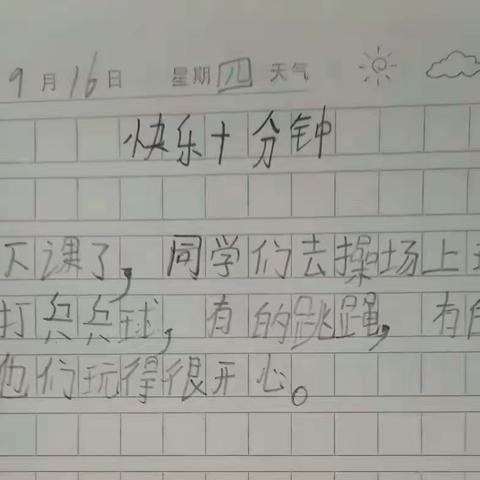 9月16日 星期四 天气
快乐十分钟
下课了，同学们去操场上
打乒乓球，有的跳绳，有
他们玩得很开心。